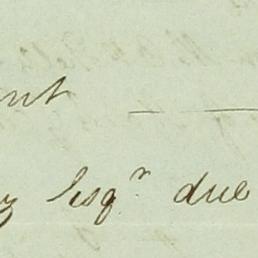 nt —
y Esqr. due